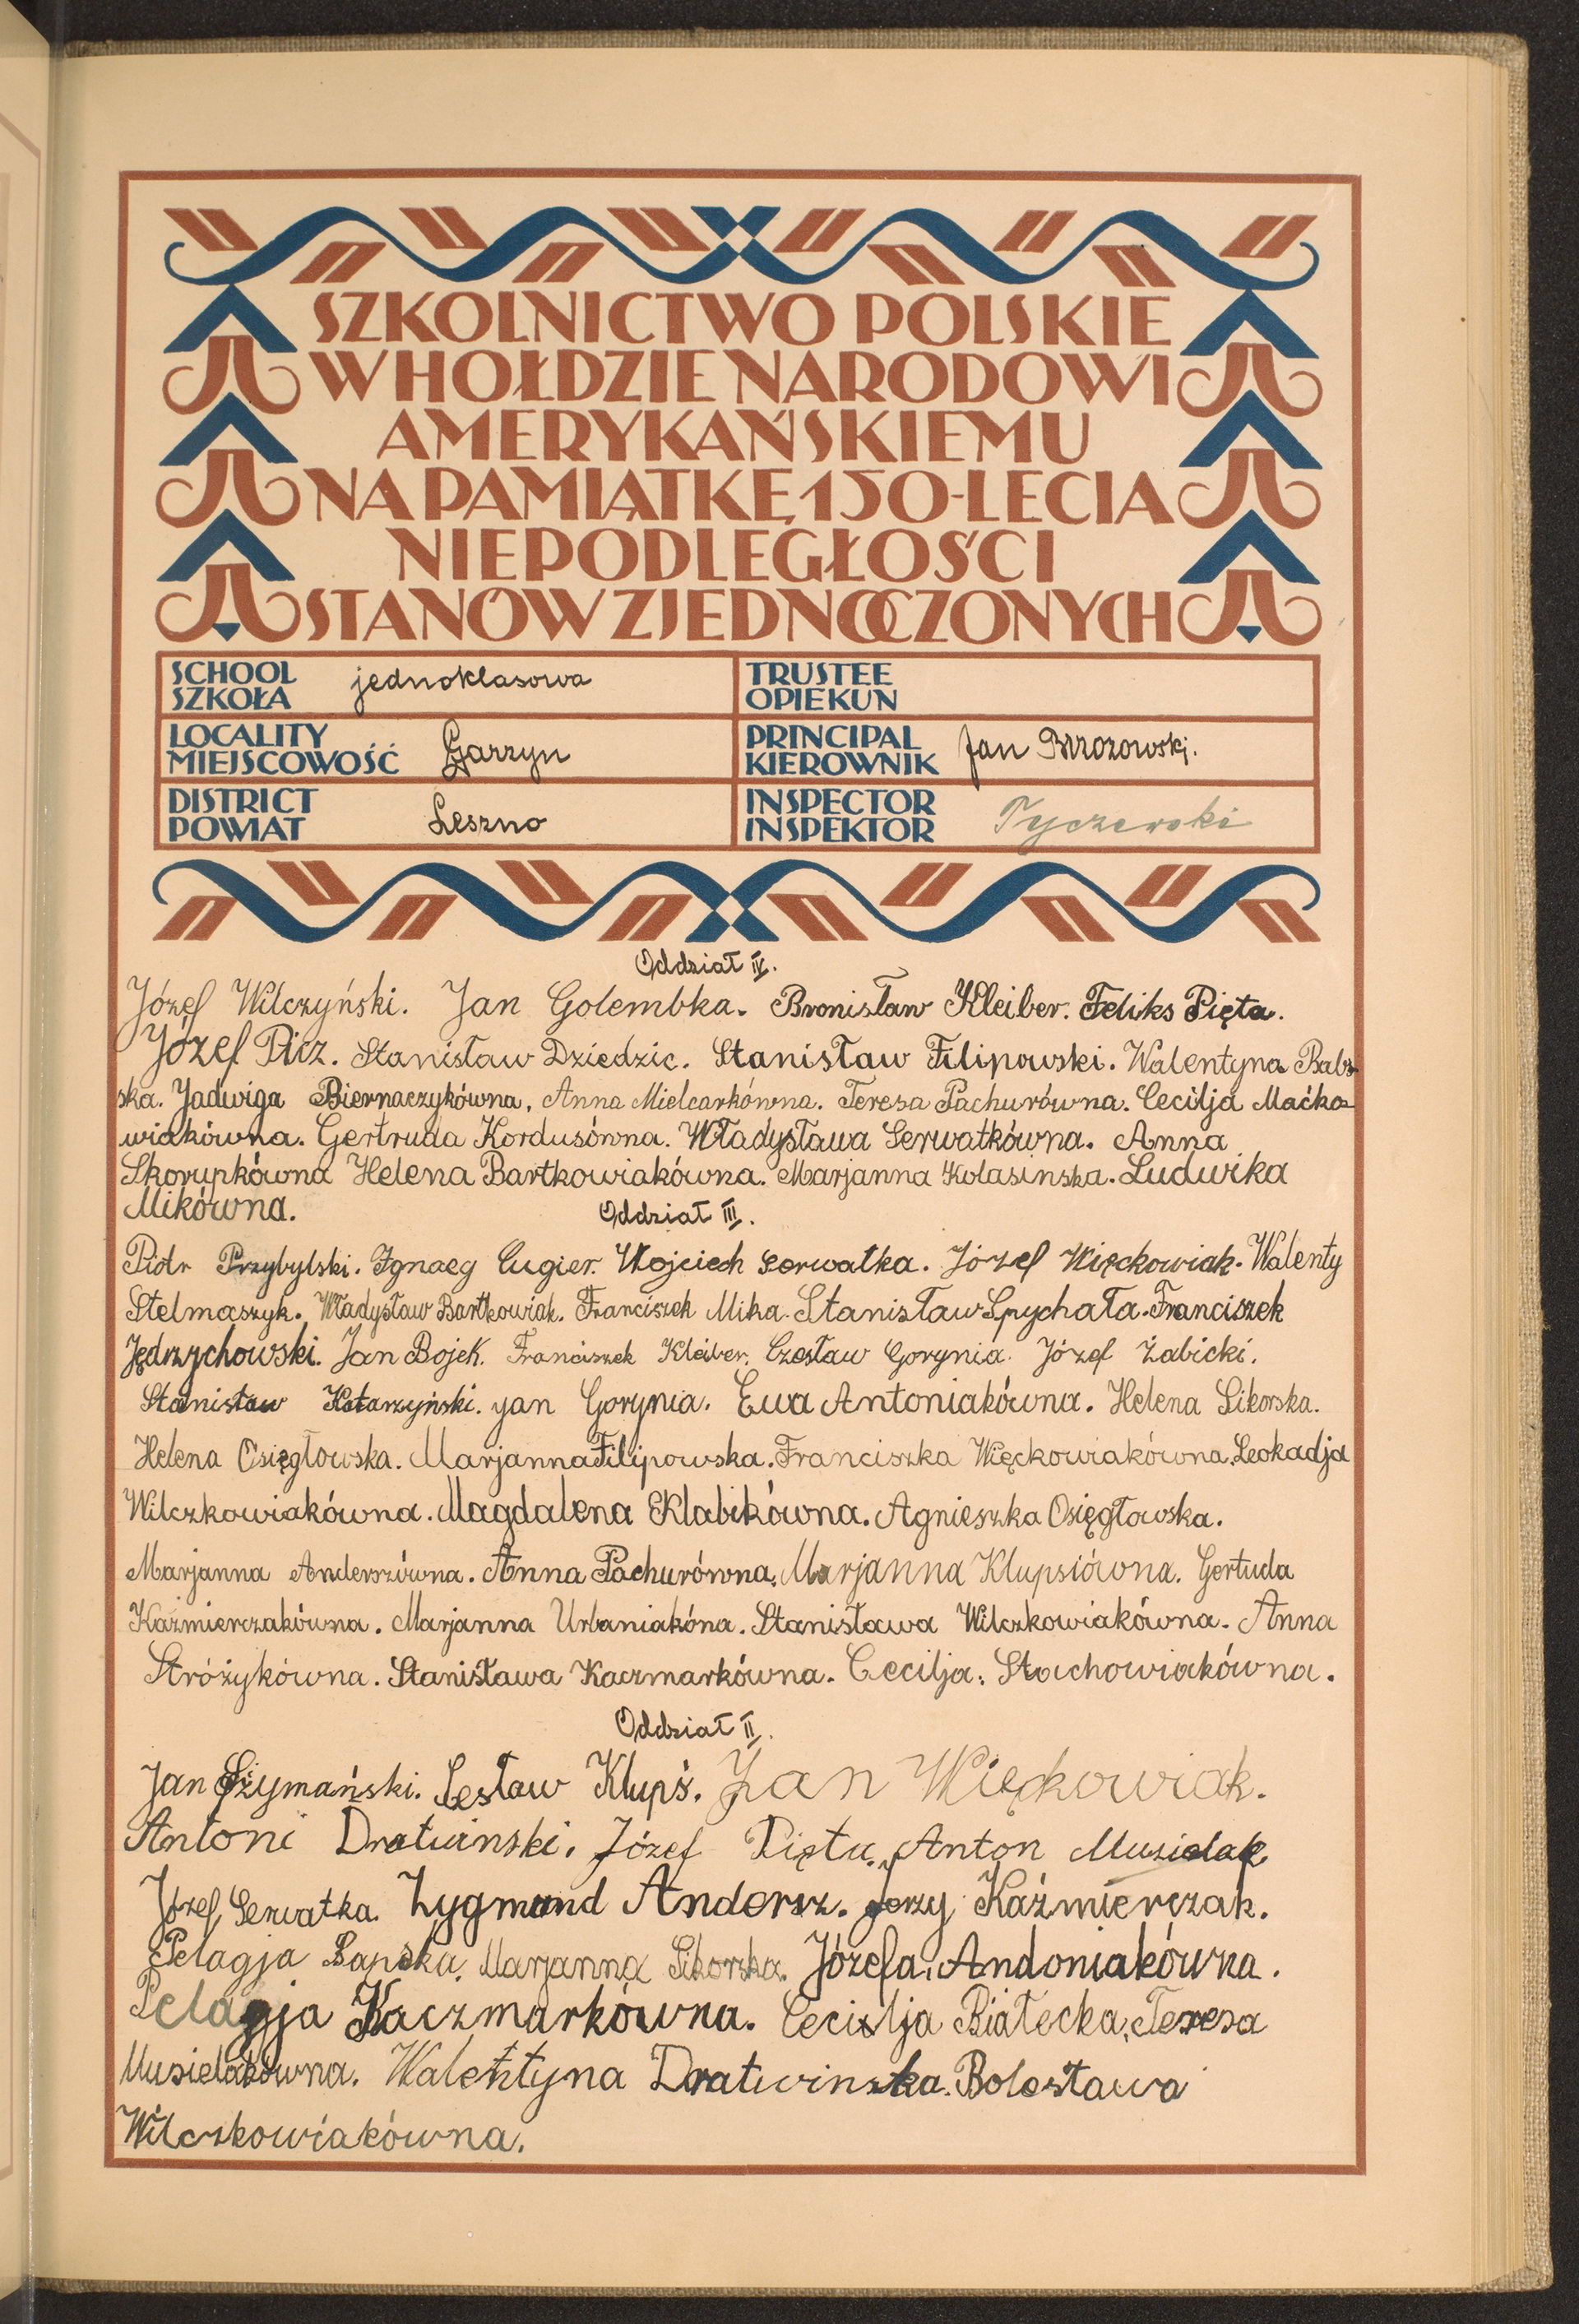 SZKOLNICTWO POLSKIE
W HOŁDZIE NARODOWI
AMERYKAŃSKIEMU
NA PAMIĄTKĘ 150-LECIA
NIEPODLEGŁOŚCI
STANÓW ZJEDNOCZONYCH
SCHOOL
SZKOŁA jednoklasowa
TRUSTEE
OPIEKUN
LOCALITY
MIEJSCOWOŚĆ Garzyn
PRINCIPAL
KIEROWNIK Jan Brzozowski.
DISTRICT
POWIAT Leszno
INSPECTOR
INSPEKTOR Tyczewski
Oddział IV.
Józef Wilczyński. Jan Golembka. Bronisław Kleiber. Feliks Pięta.
Józef Picz. Stanisław Dziedzic. Stanisław Filipowski. Walentyna Babs-
ska. Jadwiga Biernaczykówna, Anna Mielcarkówna. Teresa Pachurówna. Cecilja Maćko-
wiakówna. Gertruda Kordusówna. Władysława Serwatkówna. Anna
Skorupkówna Helena Bartkowiakówna. Marjanna Kolasinska. Ludwika
Mikówna.
Oddział III.
Piotr Przybylski. Ignacy Cugier. Wojciech Serwatka. Józef Więckowiak. Walenty
Stelmaszyk. Władysław Bartkowiak. Franciszek Mika. Stanisław Spychała. Franciszek
Jędrzychowski. Jan Bojek. Franciszek Kleiber. Czesław Gorynia. Józef Żabicki.
Stanisław Katarzyński. Jan Gorynia. Ewa Antoniakówna. Helena Sikorska.
Helena Osięgłowska. Marjanna Filipowska. Franciszka Więckowiakówna. Leokadja
Wilczkowiakówna. Magdalena Klabikówna. Agnieszka Osięgłowska.
Marjanna Anderszówna. Anna Pachurówna. Marjanna Klupsiówna. Gertuda
Kaźmierczakówna. Marjanna Urbaniakóna. Stanisława Wilczkowiakówna. Anna
Stróżykówna. Stanisława Kaczmarkówna. Cecilja. Stachowiakówna.
Oddział II.
Jan Szymański. Lesław Klupś. Jan Więckowiak.
Antoni Dratwinski. Józef Pięta. Anton Musielak
Józef Serwatka. Zygmund Andersz. Jerzy Kaźmierczak.
Pelagja Bapska. Marjanna Sikorska. Józefa. Andoniakówna.
Pelagja Kaczmarkówna. Cecilja Białecka. Teresa
Musielakówna. Walentyna Dratwinska. Bolesława
Wilczkowiakówna.